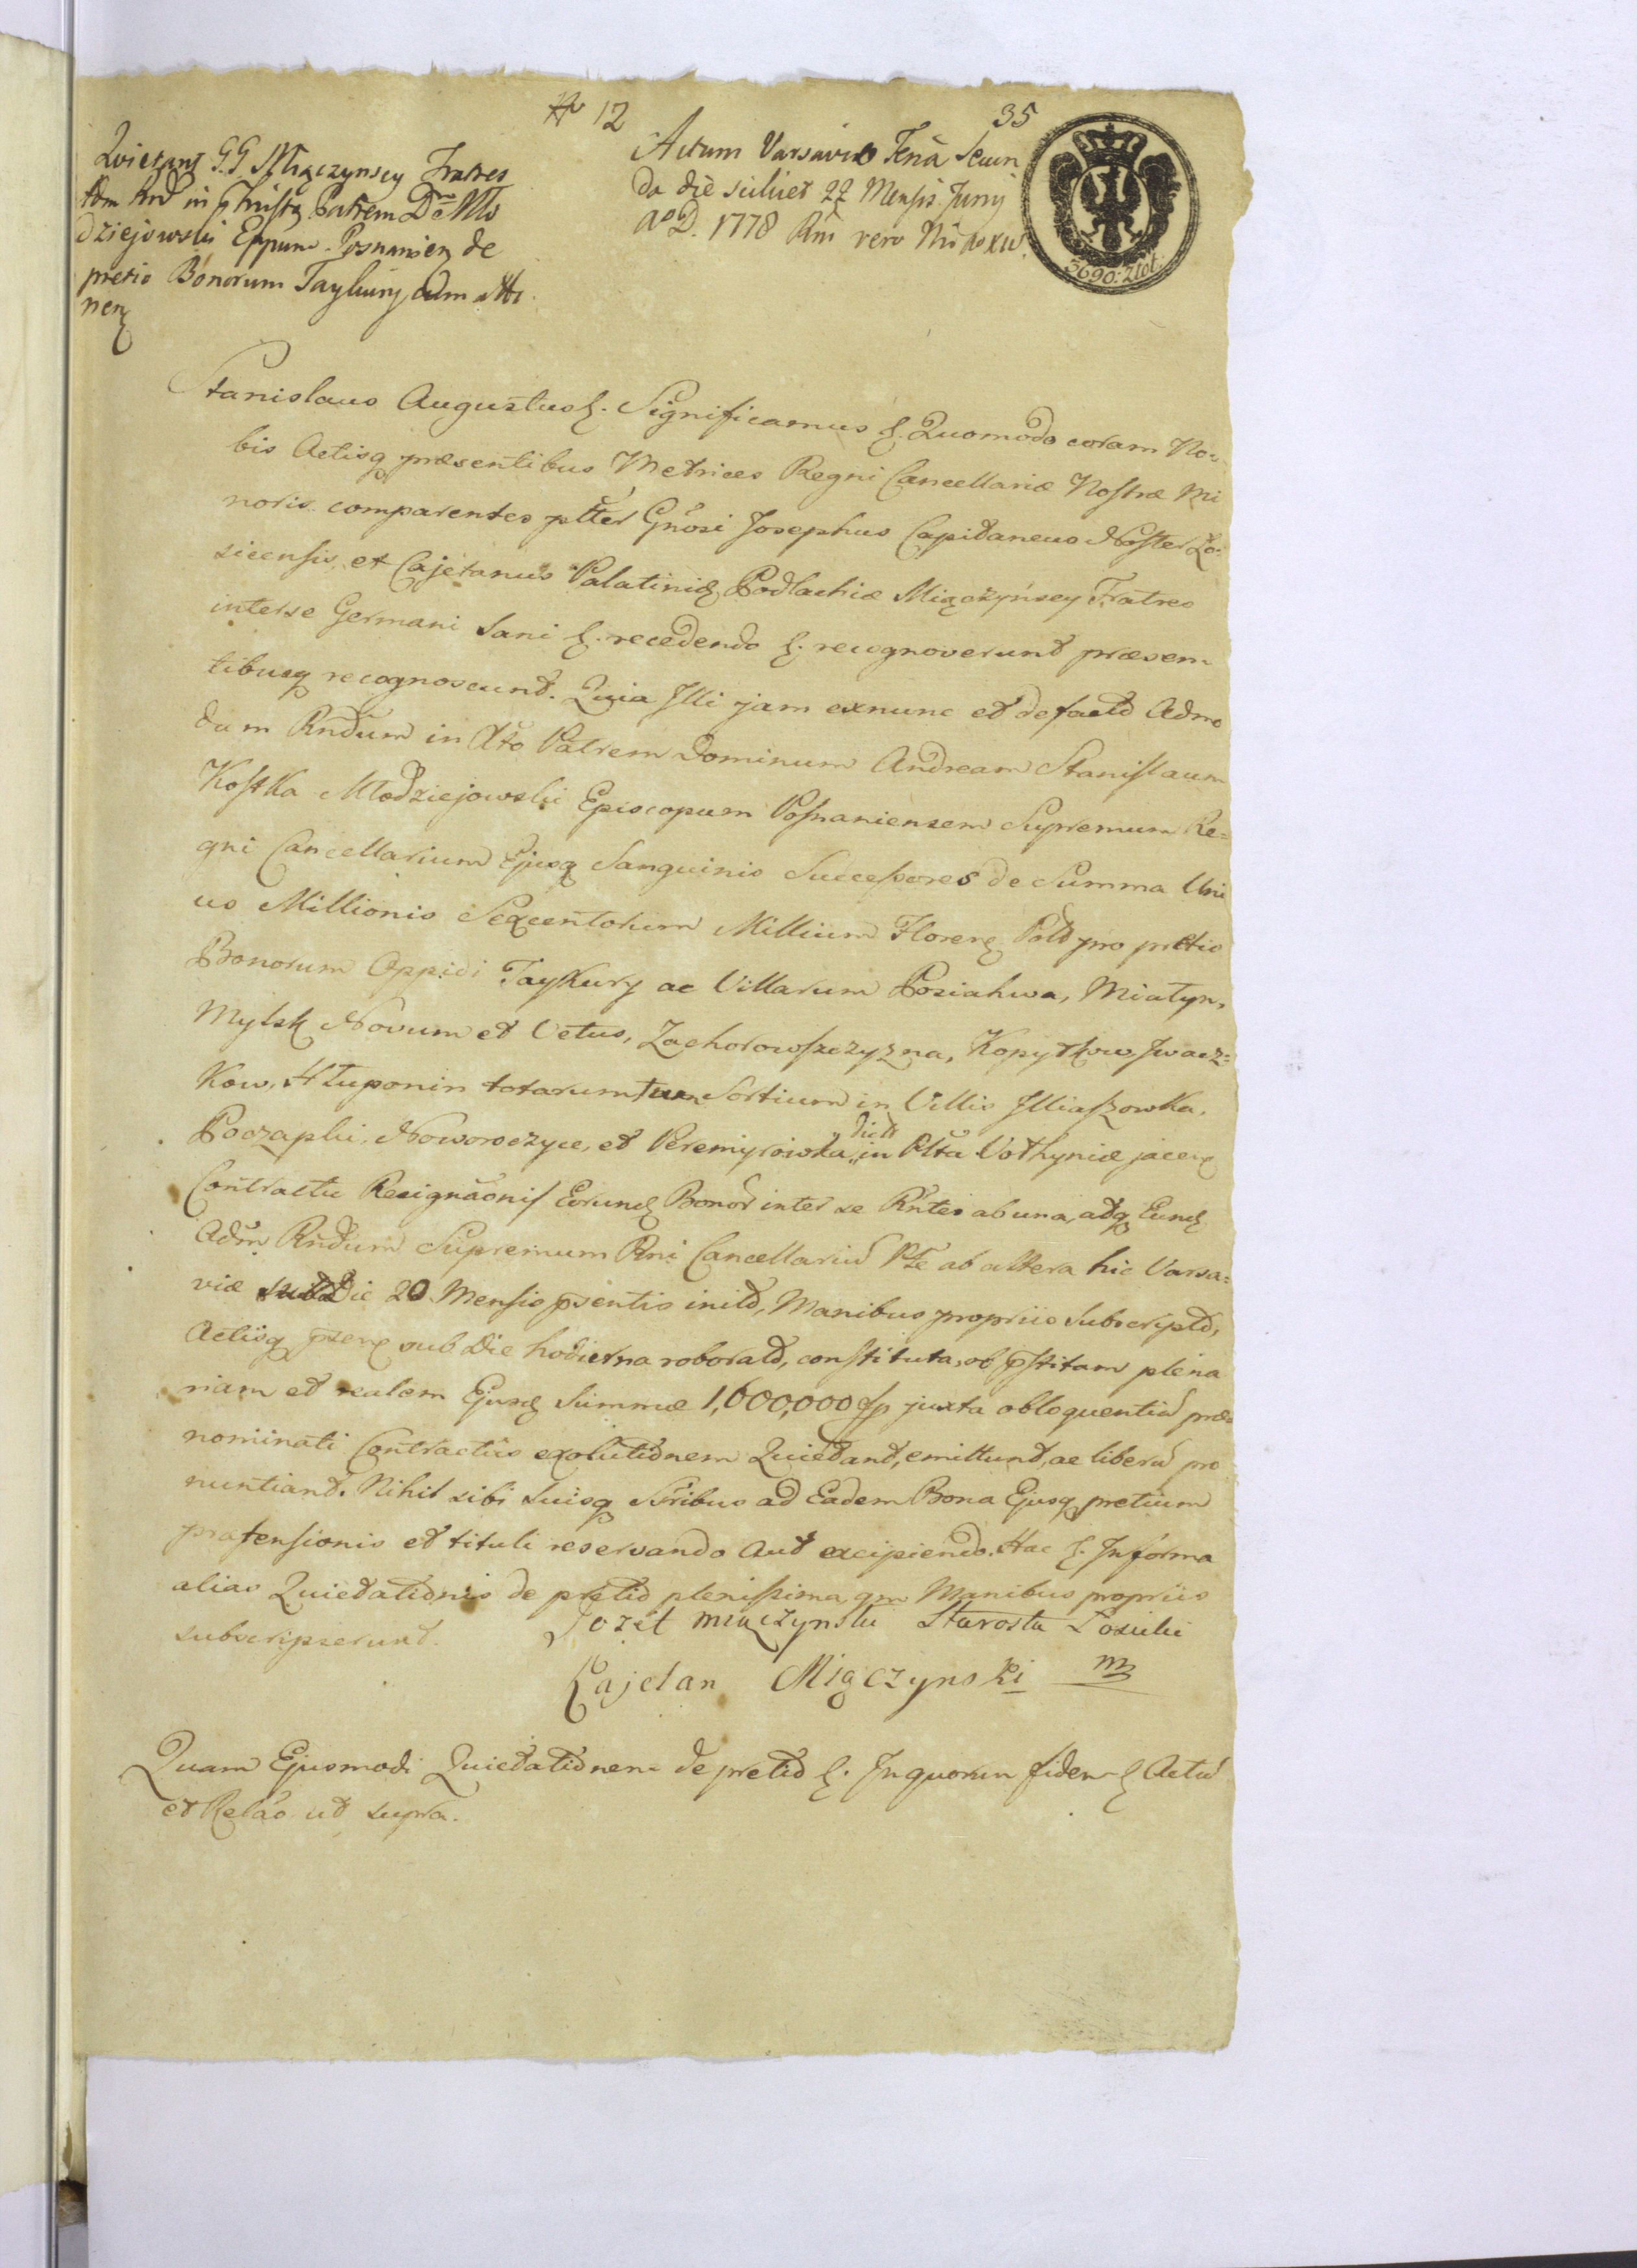 N 12
35
Quietant G.G. Miączynscy Fratres
Adm Rnd in Christo Patrem D. Mło
dziejowski Eppum Posnanien de
pretio Bonorum Taykury adm Atti
nen
Actum Varsaviæ Feria Secun
da die scilicet 22 Mensis Junij
Aº D. 1778 Rni vero Nri Aº XIV.
3690: Złot.
Stanislaus Augustus. Significamus Quomodo coram No=
bis Actisq præsentibus Metrices Regni Cancellariæ Nostræ Mi
noris comparentes pltter Gnosi Josephus Capitaneus Noster Ło=
sicensis, et Cajetanus Palatinid Podlachiæ Miączyńscy Fratres
inter se Germani Sani recedendo recognoverunt præsen
tibusq recognoscunt. Quia Illi jam exnunc et de facto Admo
dum Rndum in Xto Patrem Dominum Andream Stanislaum
Kostka Młodziejowski Episcopum Posnaniensem Supremum Re=
gni Cancellarium Ejusq Sanguinis Successores de Summa Uni
us Millionis Sexcentorum Millium Floren Pold pro pretio
Bonorum Oppidi Taykury ac Villarum Posiahwa, Miatyn,
Mylsk Novum et Vetus, Zachorowszczyzna, Kopytkow, Iwacz=
kow, Hłuponin totarum tum Sortium in Villis Illiaszowka,
Poczapki, Noworoczyce, et Peremyrowka dict in Pltta Volhyniæ jacen
Contractu Resignaonis Eorund Bonor inter se Rntes ab una, adq Eund
Adm Rndum Supremum Rni Cancellariu Pte ab altera hic Varsa=
viæ sub Die 20 Mensis psentis inito, Manibus propriis Subscripto,
Actisq psen sub Die hodierna roborato, constituta, ob pstitam plena
riam et realem Ejusd Summæ 1,600,000 fp juxta obloquentiu præ
nominati Contractus exolutionem Quietant, emittunt, ac liberu pro
nuntiant. Nihil sibi Suisq Sribus ad Eadem Bona Ejusq pretium
prætensionis et tituli reservando aut excipiendo. Hac In forma
alias Quietationis de pretio plenissima qm Manibus propriis
subscripserunt. Jozef Miączynski Starosta Łosicki
Cajetan Miączynski mp
Quam Ejusmodi Quietationem de pretio In quorum fidem Actu
et Relao ut supra.